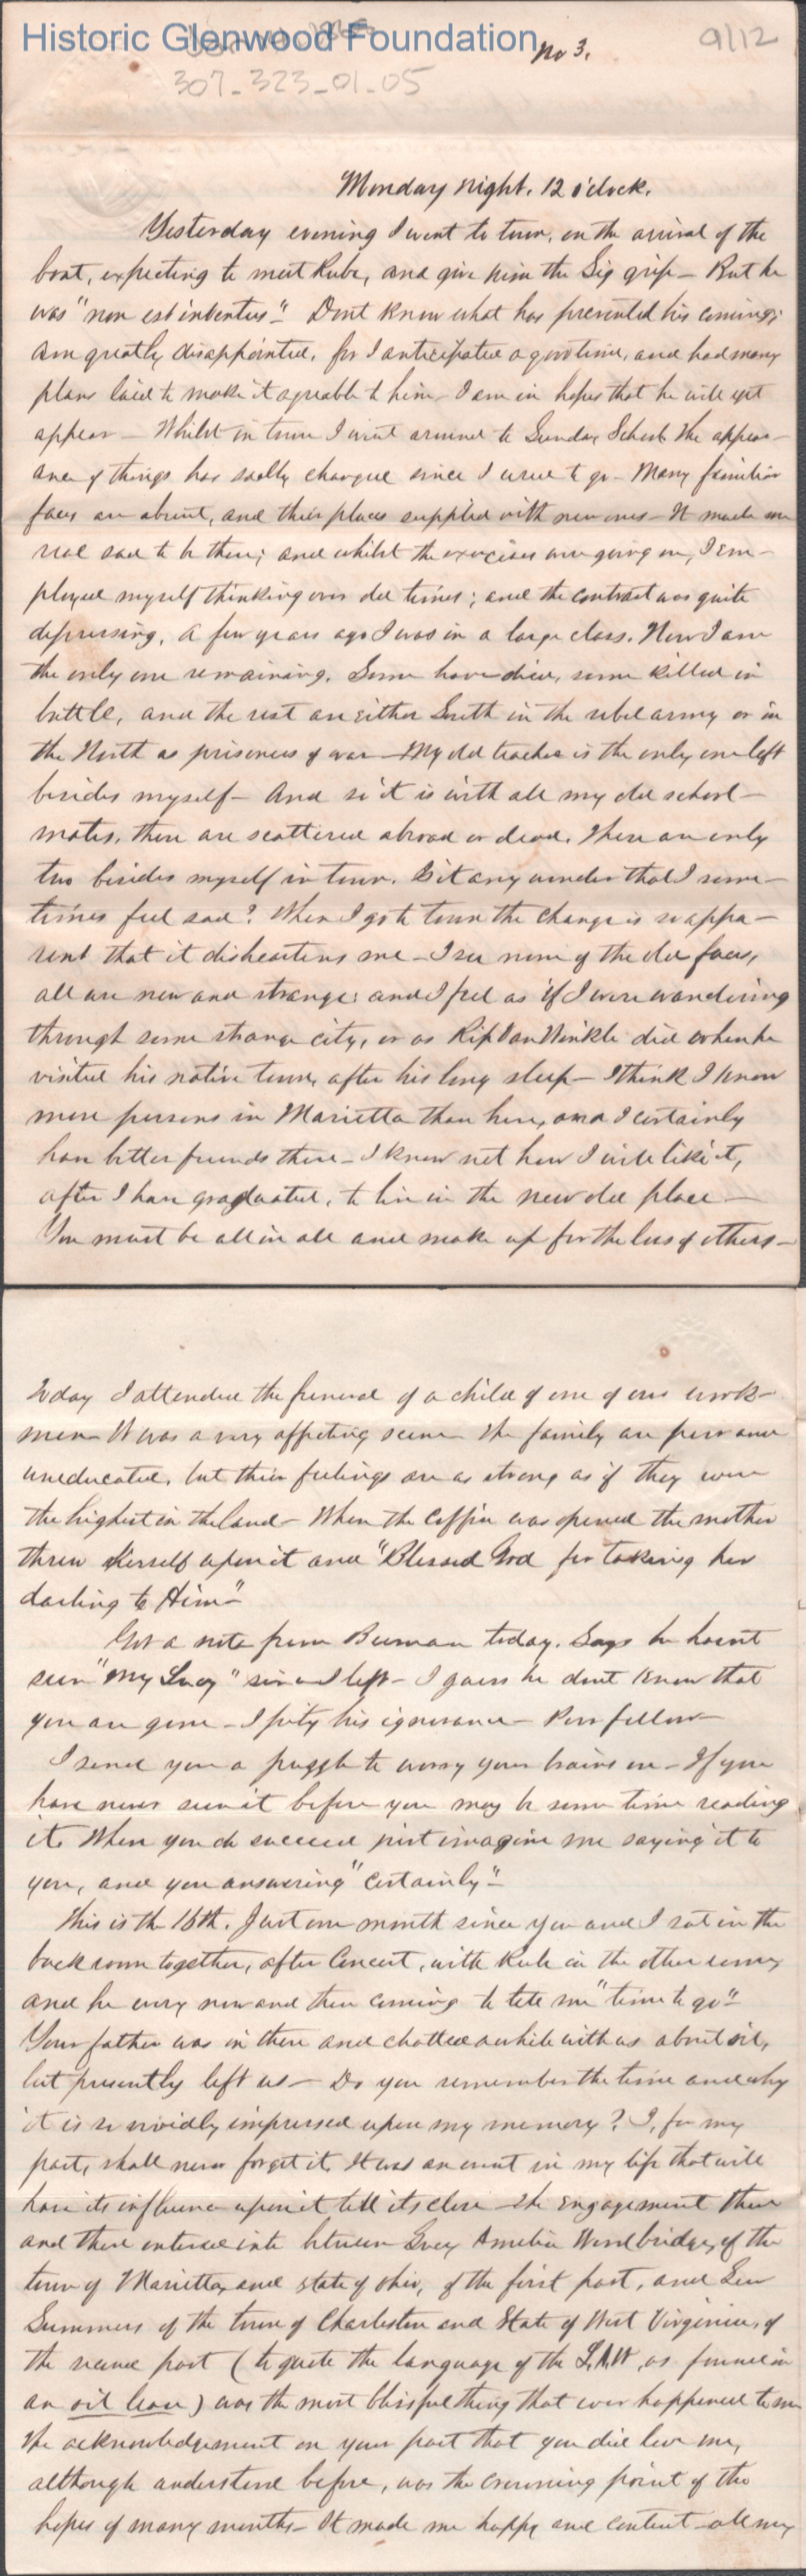 Historic Glenwood Foundation
No 3.
9/12
307-323-01-05
Monday night. 12 o'clock.
Yesterday evening I went to town, on the arrival of the
boat, expecting to meet Rube, and give him the Sig grip — But he
was "non est inbentus". Dont know what has prevented his coming;
am greatly disappointed, for I anticipated a good time, and had many
plans laid to make it agreable to him — I am in hopes that he will yet
appear — Whilst in town I went around to Sunday School. The appear-
ance of things has sadly changed since I used to go — Many familiar
faces are absent, and their places supplied with new ones — It made me
real sad to be there; and whilst the exercises were going on, I em-
ployed myself thinking over old times; and the contrast was quite
depressing. A few years ago I was in a large class. Now I am
the only one remaining. Some have died, some killed in
battle, and the rest are either South in the rebel army or in
the North as prisoners of war — My old teacher is the only one left
besides myself — And so it is with all my old school-
mates, they are scattered abroad or dead. There are only
two besides myself in town. Is it any wonder that I some-
times feel sad? When I go to town the change is so appa-
rent that it disheartens me — I see none of the old faces,
all are new and strange; and I feel as if I were wandering
through some strange city, or as Rip Van Winkle did when he
visited his native town, after his long sleep — I think I know
more persons in Marietta than here, and I certainly
have better friends there — I know not how I will like it,
after I have graduated, to live in the new old place —
You must be all in all and make up for the loss of others —
Today I attended the funeral of a child of one of our work-
men — It was a very affecting scene — The family are poor and
uneducated, but their feelings are as strong as if they were
the highest in the land — When the coffin was opened the mother
threw herself upon it and "Blessed God for taking her
darling to Him" —
Got a note from Beeman today. Says he hasn't
seen "My Lucy" since I left — I guess he dont know that
you are gone — I pity his ignorance — Poor fellow —
I send you a puzzle to worry your brains on — If you
have never seen it before you may be some time reading
it. When you do succeed just imagine me saying it to
you, and you answering "Certainly" —
This is the 16th. Just one month since you and I sat in the
back room together, after Concert, with Rube in the other room,
and he every now and then coming to tell me "time to go" —
Your father was in there and chatted awhile with us about oil,
but presently left us — Do you remember the time and why
it is so vividly impressed upon my memory? I, for my
part, shall never forget it. It was an event in my life that will
have its influence upon it till its close — The engagement then
and there entered into between Lucy Amelia Woodbridge, of the
town of Marietta, and state of Ohio, of the first part, and Lew
Summers of the town of Charleston and State of West Virginia, of
the second part (to quote the language of the LAW, as found in
an oil lease) was the most blissful thing that ever happened to me
The acknowledgement on your part that you did love me,
although understood before, was the crowning point of the
hopes of many months — It made me happy and content — all my